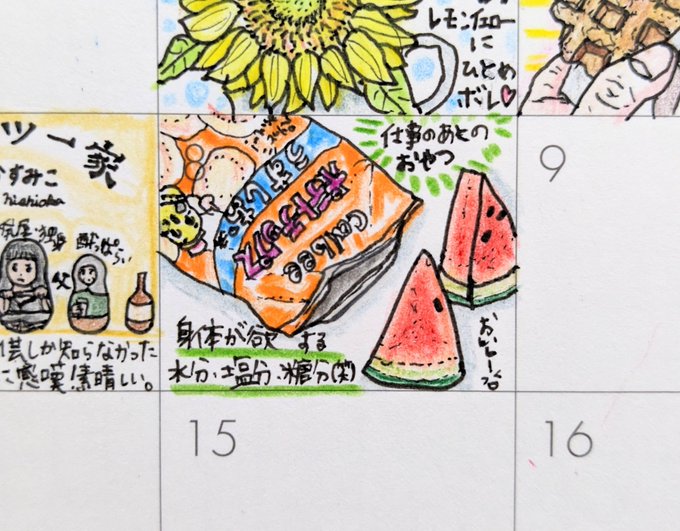 レモンイエロー
に
ひとめ
ボレ♡
ツー家
すみこ
nishioka
酔っぱらい
父
しか知らなかった
感嘆!素晴しい。
仕事のあとの
おやつ
うすしお味
ポテトチップス
Calbee
身体が欲する
水分、塩分、糖分(笑)
おいしーっ
9
15
16